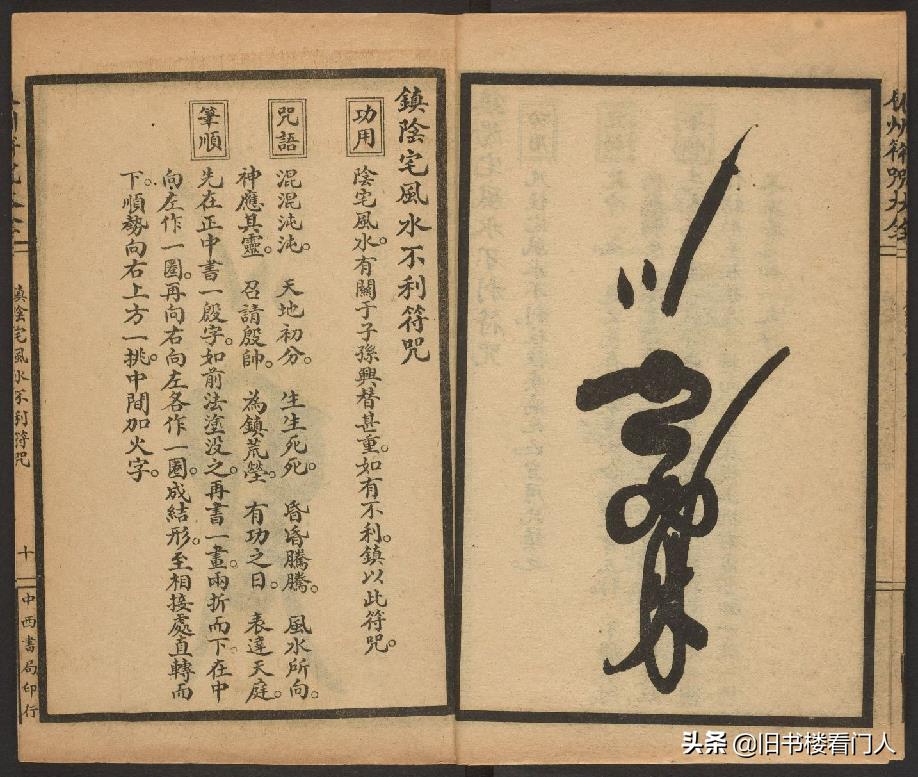 鎮陰宅風水不利符咒
功用
陰宅風水。有關于子孫興替甚重。如有不利。鎮以此符咒。
咒語
混混沌沌。天地初分。生生死死。昏昏騰騰。風水所向。
神應具靈。召請殷帥。為鎮荒塋。有功之日。表達天庭。
筆順
先在正中書一殷字。如前法塗沒之。再書一畫。兩折而下。在中
向左作一圈。再向右向左各作一圈。成結形。至相接處直轉而
下。順勢向右上方一挑。中間加火字。
鎮陰宅風水不利符咒
十
中西書局印行
头条 @旧书楼看门人